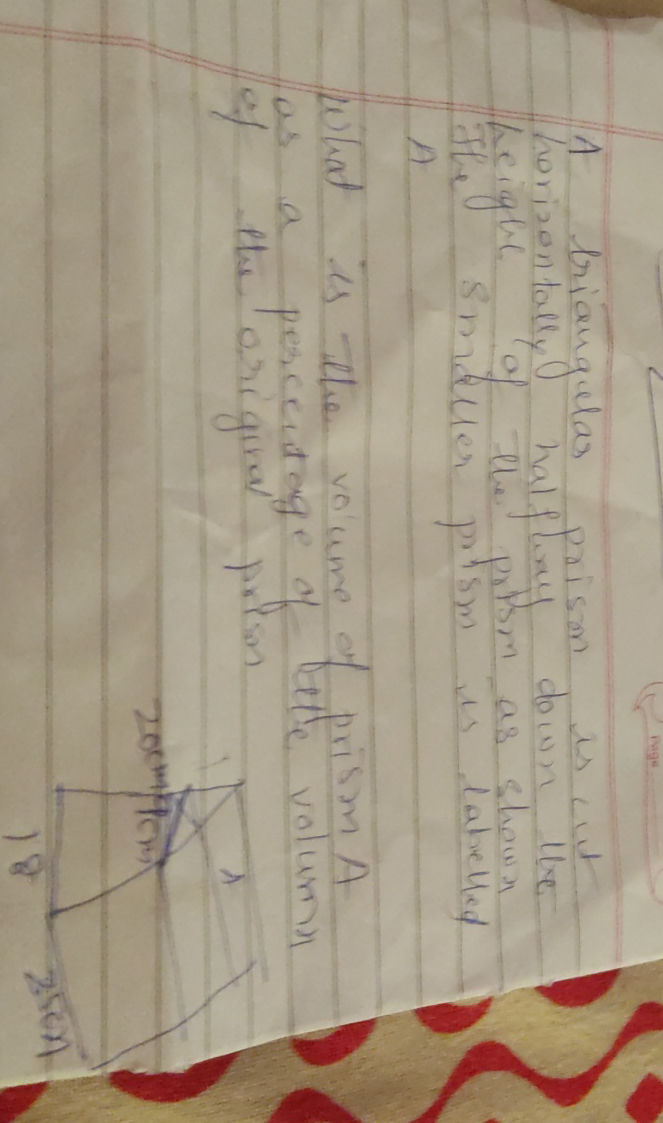 A triangular prison is cut
horizontally halfway down the
height of the prism as shown
The smaller prism is labelled
A
What is the volume of prism A
as a percentage of the volume
of the original prison
A
20cm
9cm
18
25cm
Page